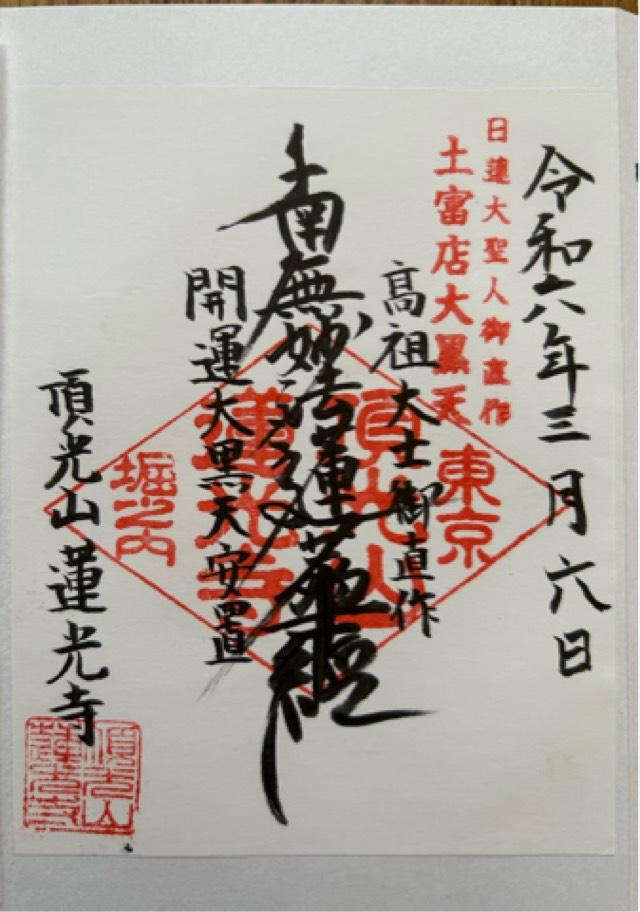 令和六年三月六日
日蓮大聖人御直作
土富店大黒天
東京
高祖大士御直作
頂光山
南無妙法蓮華経
蓮光寺
開運大黒天安置
堀之内
頂光山蓮光寺
頂光山
蓮光寺